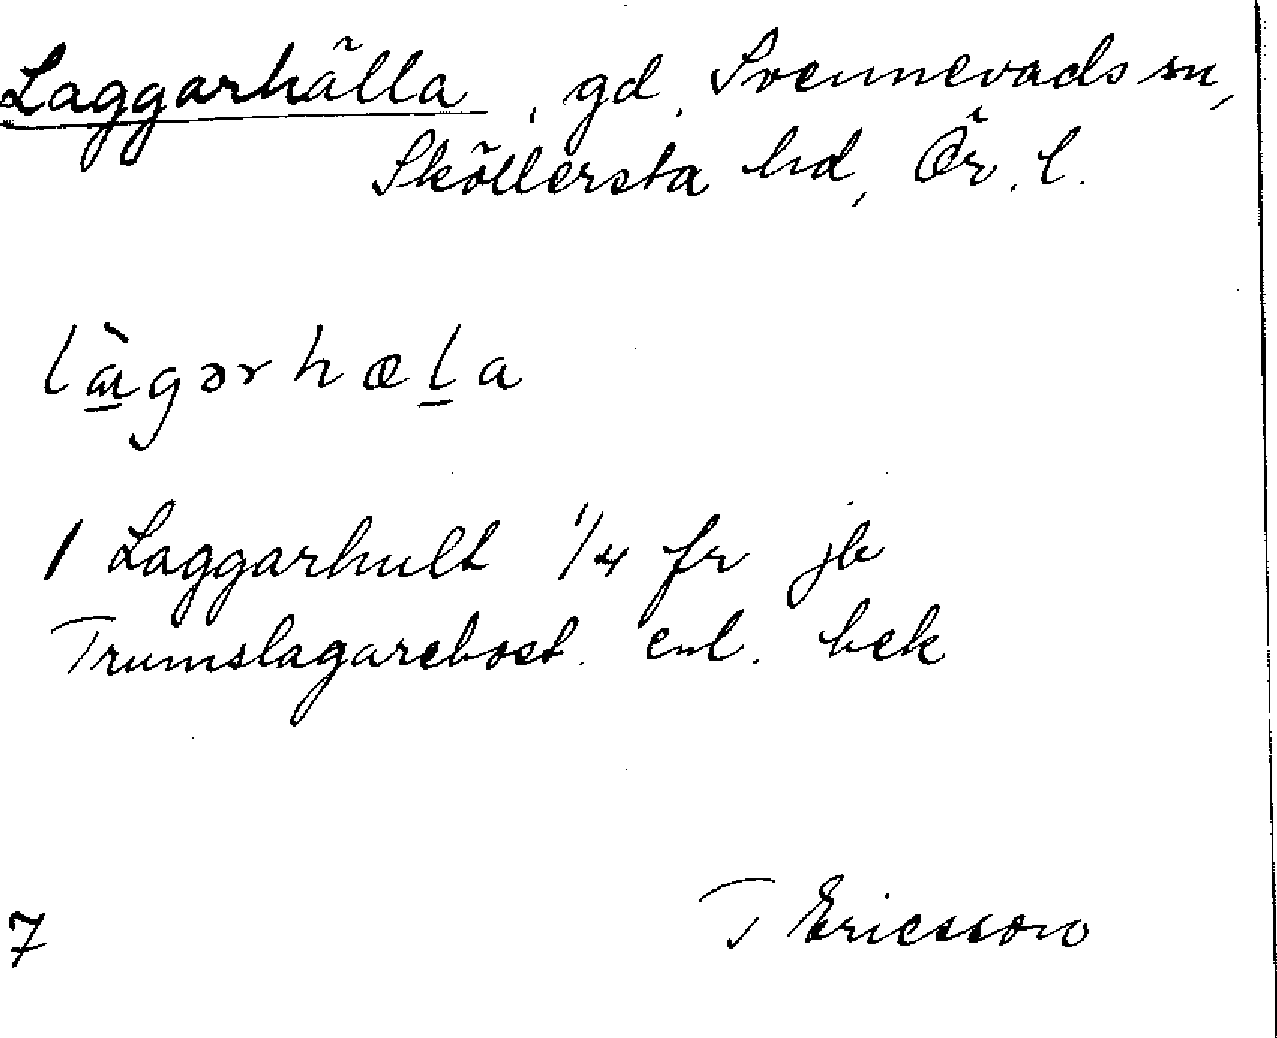 Laggarhälla, gd, Svennevads sn,
Sköllersta hd, Ör. l.
là̱gərhæḻa
1 Laggarhult 1/4 fr jb
Trumslagarebost. enl. bek
7
T Ericsson